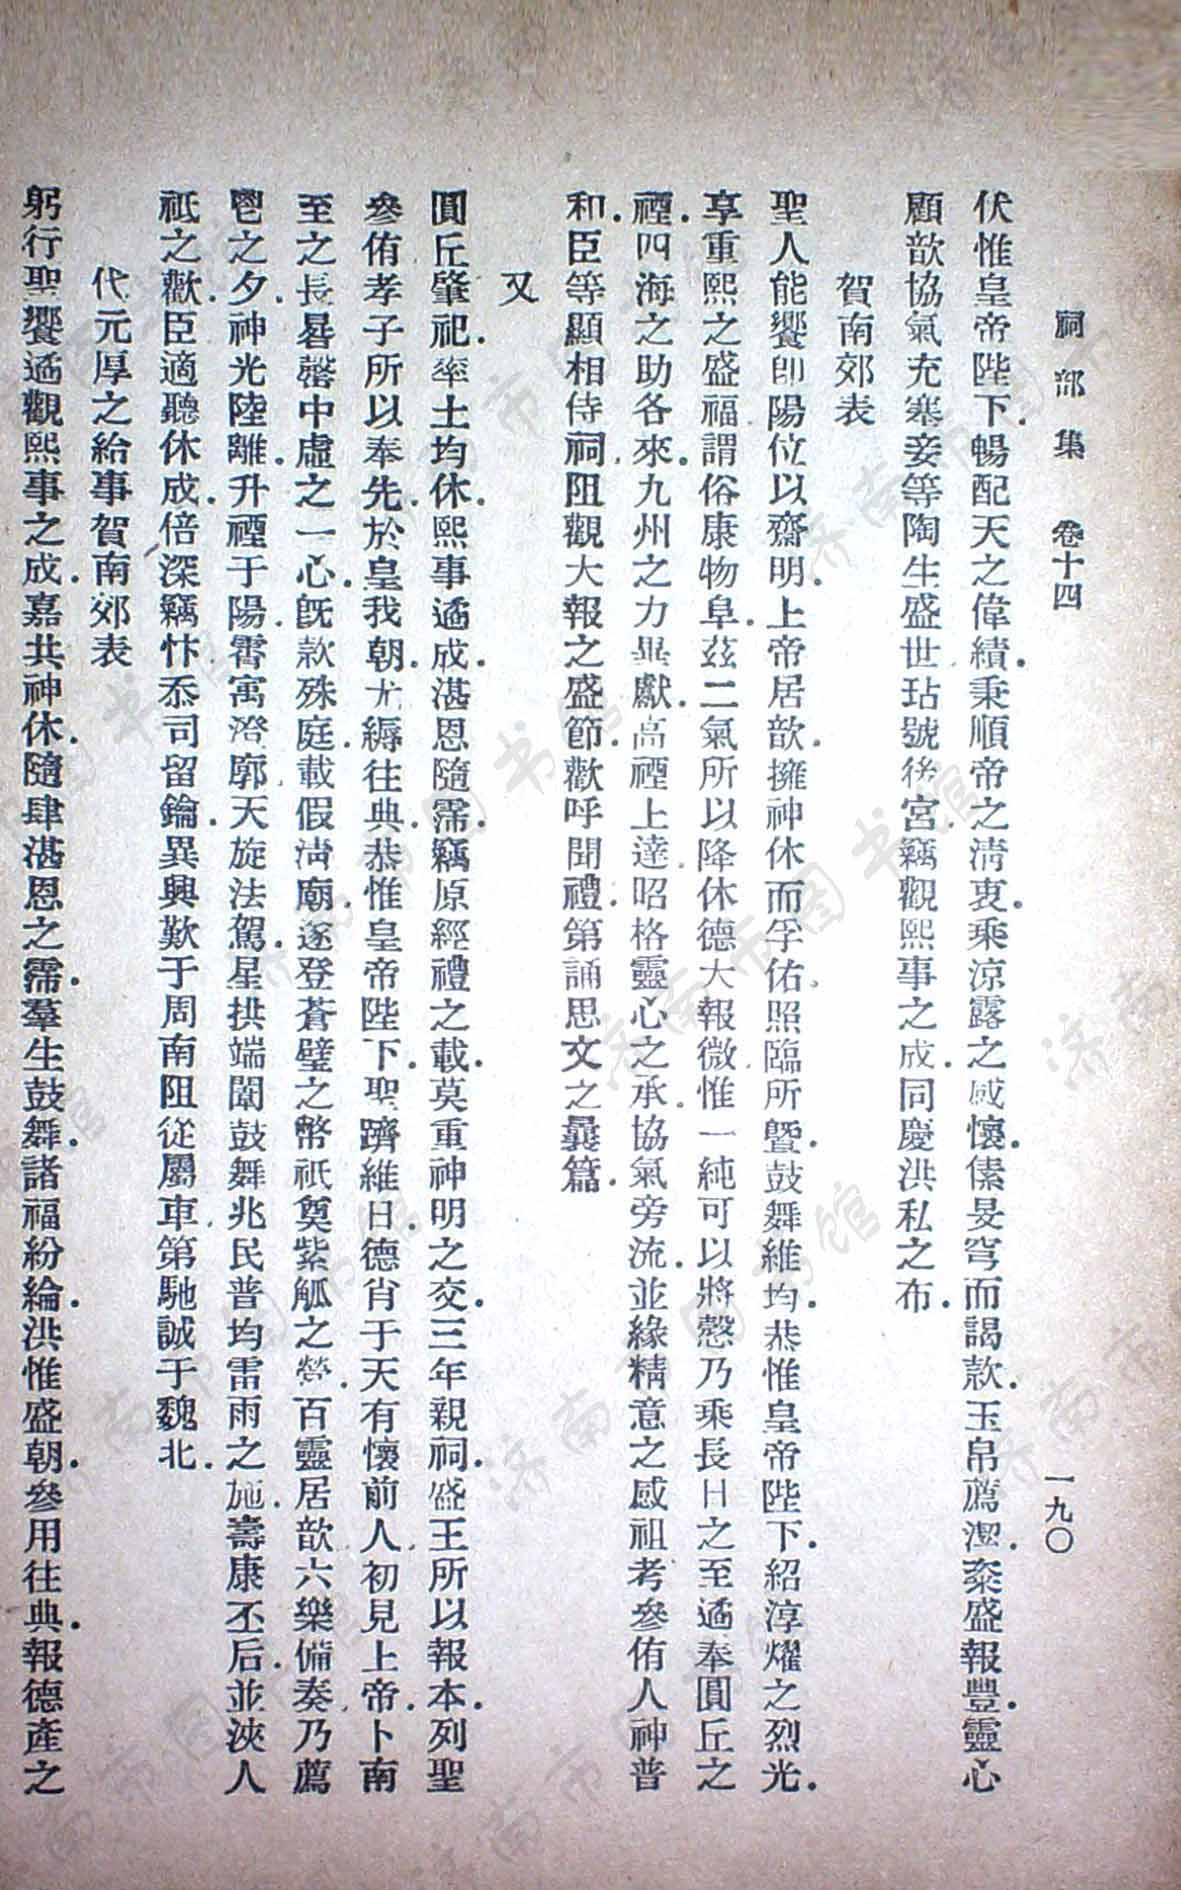 祠部集 卷十四 一九〇
伏惟皇帝陛下．暢配天之偉績．秉順帝之清衷．乘涼露之感懷．傃旻穹而謁款．玉帛薦潔．粢盛報豐．靈心
顧歆．協氣充塞．妾等陶生盛世．玷號後宮．竊觀熙事之成．同慶洪私之布．
賀南郊表
聖人能饗．卽陽位以齋明．上帝居歆．擁神休而孚佑．照臨所曁．鼓舞維均．恭惟皇帝陛下．紹淳燿之烈光．
享重熙之盛福．謂俗康物阜．茲二氣所以降休．德大報微．惟一純可以將慤．乃乘長日之至．遹奉圓丘之
禋．四海之助各來．九州之力畢獻．高禋上達．昭格靈心之承．協氣旁流．並緣精意之感．祖考參侑．人神普
和．臣等顯相侍祠．阻觀大報之盛節．歡呼聞禮．第誦思文之彛篇．
又
圓丘肇祀．率土均休．熙事遹成．湛恩隨霈．竊原經禮之載．莫重神明之交．三年親祠．盛王所以報本．列聖
參侑．孝子所以奉先．於皇我朝．尤縟往典．恭惟皇帝陛下．聖躋維日．德肖于天．有懷前人．初見上帝．卜南
至之長晷．罄中虛之一心．旣款殊庭．載假淸廟．遂登蒼璧之幣．祇奠紫觚之塋．百靈居歆．六樂備奏．乃薦
鬯之夕．神光陸離．升禋于陽．霽寓澄廓．天旋法駕．星拱端闈．鼓舞兆民．普均雷雨之施．壽康丕后．並浹人
祇之歡．臣適聽休成．倍深竊忭．忝司留鑰．異興歎于周南．阻從屬車．第馳誠于魏北．
代元厚之給事賀南郊表
躬行聖饗．遹觀熙事之成．嘉共神休．隨肆湛恩之霈．羣生鼓舞．諸福紛綸．洪惟盛朝．參用往典．報德產之
济南市图书馆